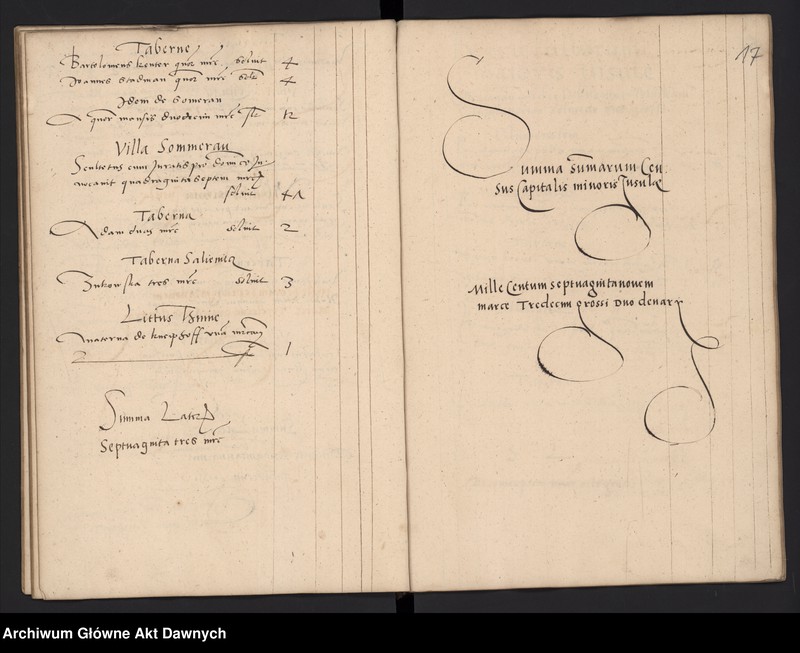 Taberne
Bartolomeus Kenter quor mrc solvit 4
Joannes Stadman quor mrc solt 4
Idem de Someran
quor mansis duodecim mrc st 12
Villa Sommerau
Scultetus cum Juratis pro domi
vocavit quadraginta septem mrc
solvit 47
Taberna
Adam duas mrc solvit 2
Taberna
tres mrc solvit 3
Littus
de Kneiphoff una mrcam 1
Summa Lateris
Septuaginta tres mrc
17
Summa summarum Cen
sus Capitalis minoris Insulae
Mille Centum septuaginta novem
marce Tredecim grossi Duo denarii
Archiwum Główne Akt Dawnych